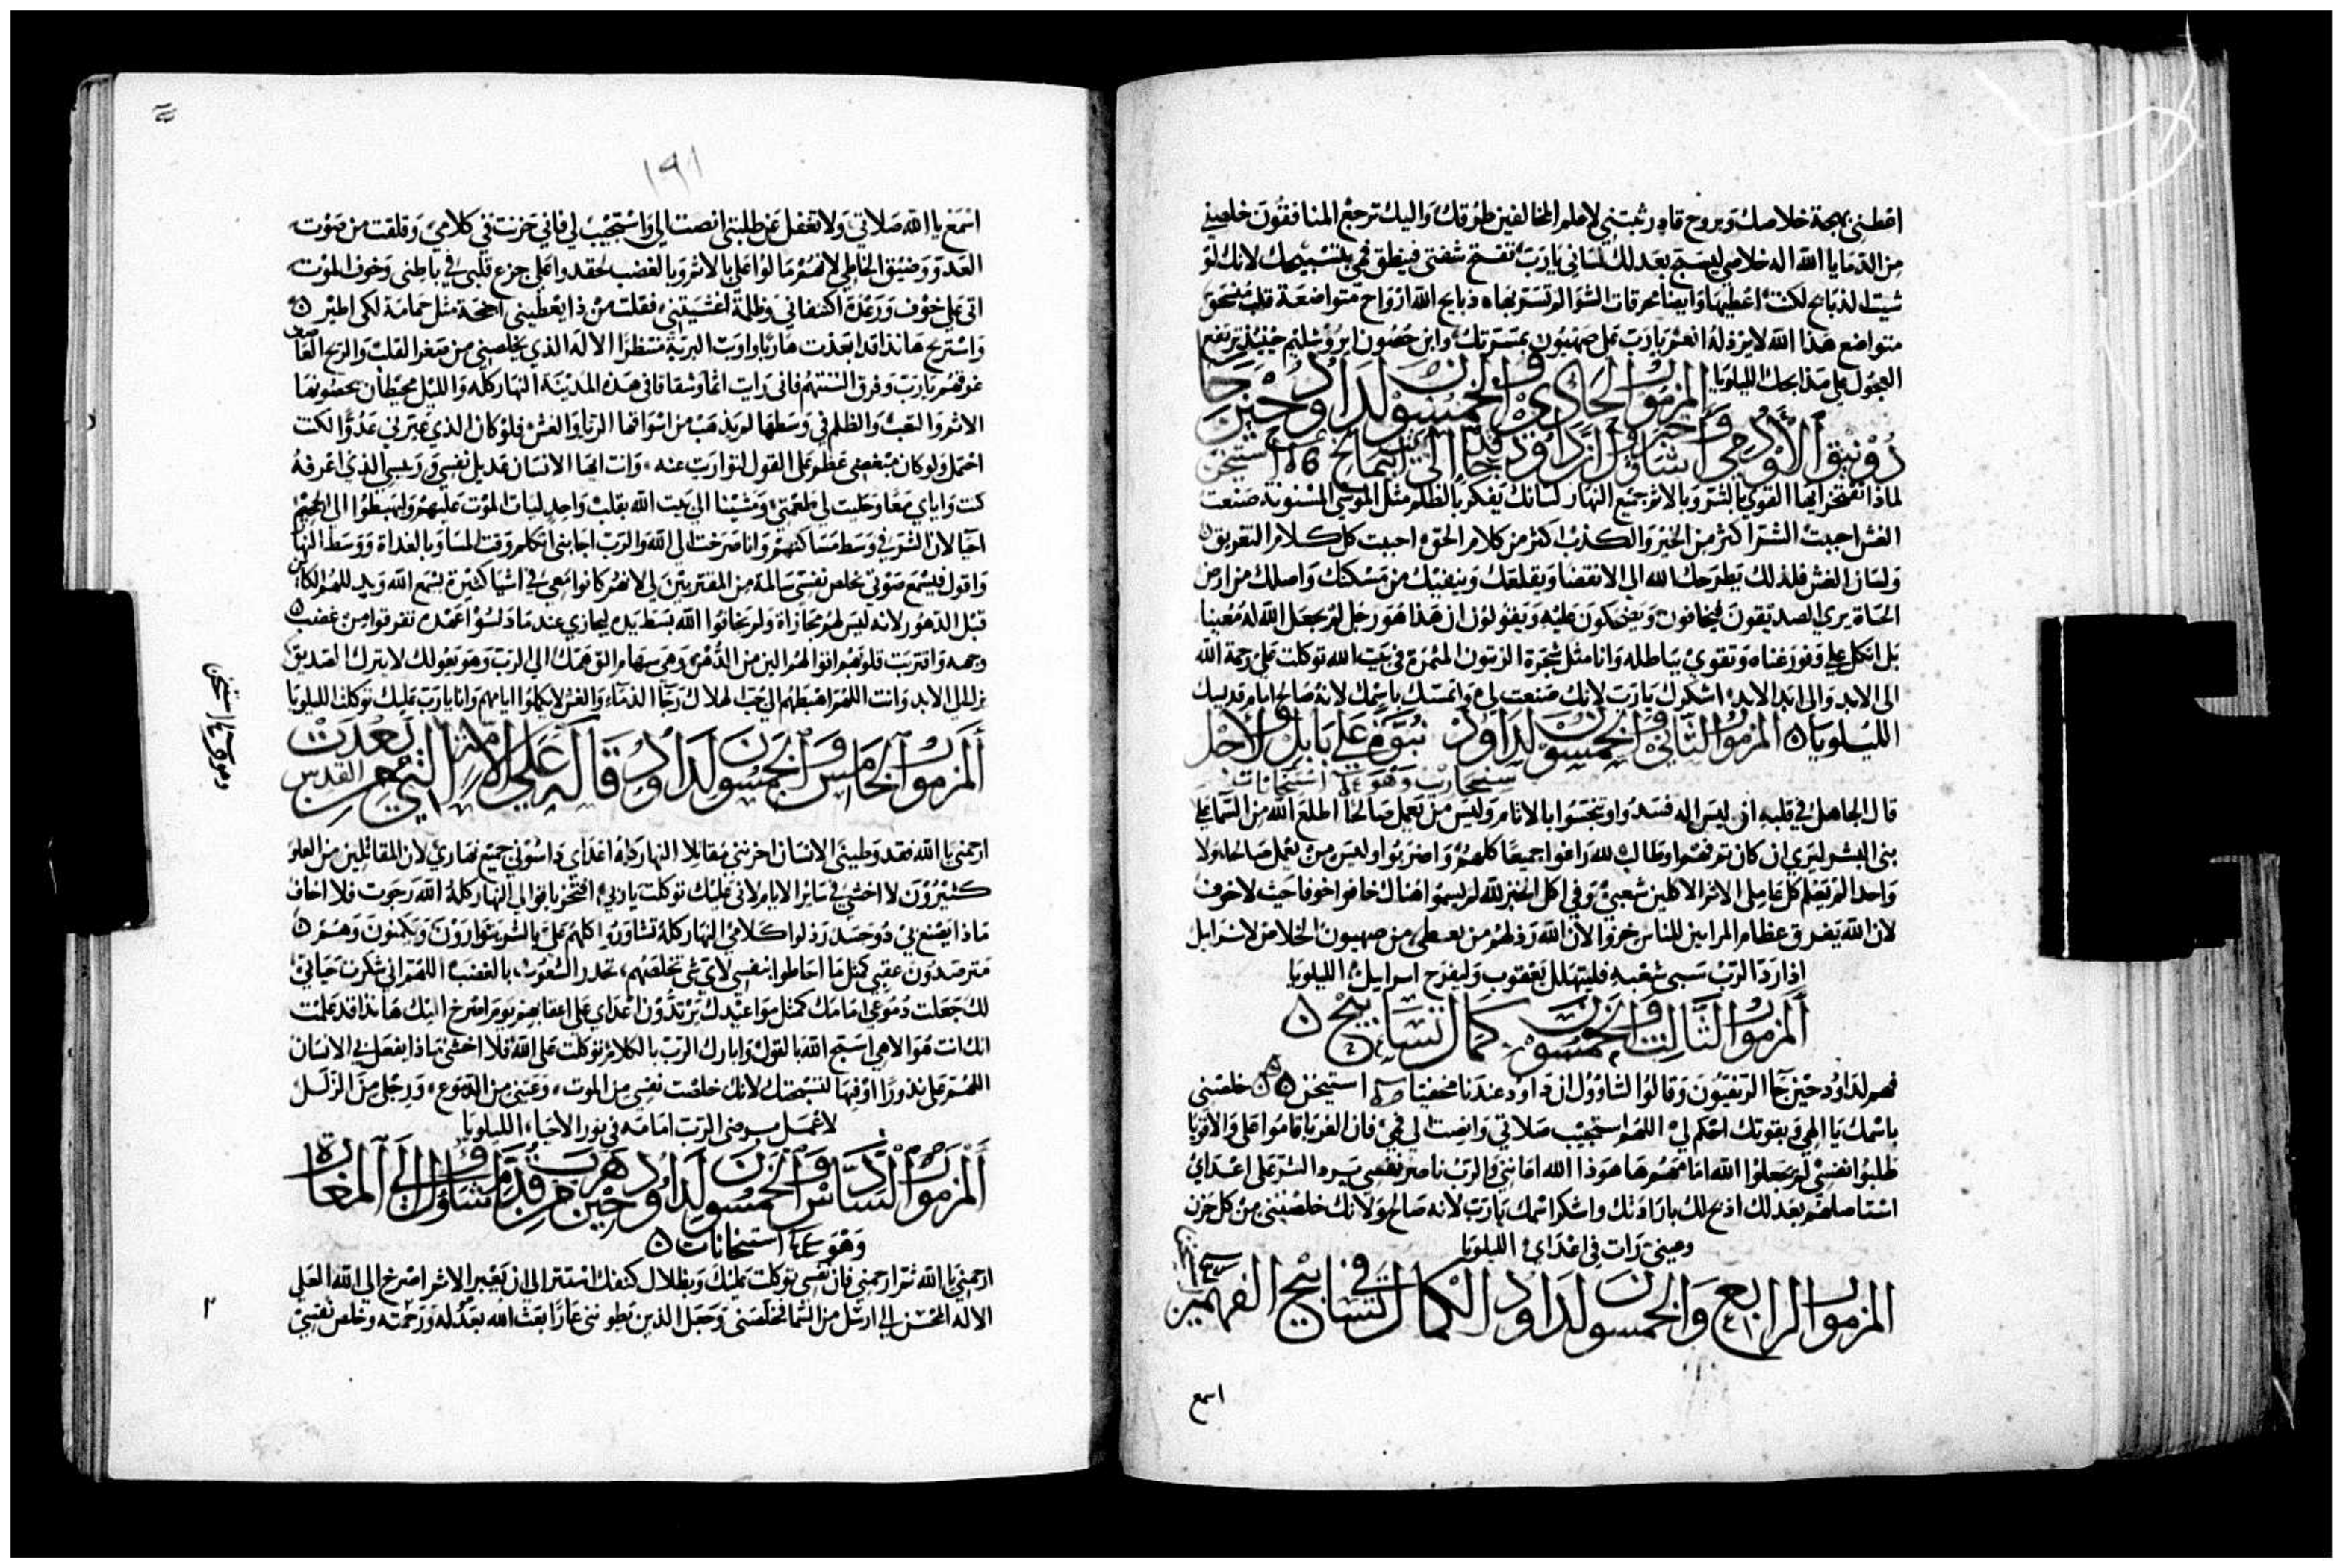 اعطني بهجة خلاصك وبروح قادر ثبتني لاعلم المخالفين طرقك واليك ترجع المنافقون خلصني
من الدما يا الله اله خلاصي ليسبح بعدلك لساني يارب تفتح شفتي فينطق فمي بتسبيحك لانك لو
شيت الذبايح لكنت اعطيها وايضا محرقات لم تسر بها ذبايح الله ارواح متواضعة قلب منسحق
متواضع هذا الله لا يرذله انعم يارب على صهيون بمسرتك وابن حصون ايروشليم حينيذ ترتفع
العجول على مذابحك الليلويا المزمور الحادي والخمسون لداوود حين جا
دونيق الادومي واخبر شاوول ان داوود جا الي استيخن
لماذا تفتخر ايها القوي بالشر وبالاثم جميع النهار لسانك يفكر بالظلم مثل الموسى المسنونة صنعت
الغش احببت الشر اكثر من الخير والكذب اكثر من كلام الحق احببت كل كلام التغريق
ولسان الغش فلذلك يطرحك الله الى الانقضا ويقلعك وينفيك من مسكنك واصلك من ارض
الحياة يري الصديقون فيخافون ويضحكون عليه ويقولون ان هذا هو رجل لم يجعل الله له معينا
بل اتكل على وفور غناه وتقوي بباطله وانا مثل شجرة الزيتون المثمرة في بيت الله توكلت على رحمة الله
الى الابد والى ابد الابد اشكرك يارب لانك صنعت لي واتمسك باسمك لانه صالح امام قديسيك
الليلويا المزمور الثاني والخمسون لداوود نبوة على بابل ولاجل
سنحاريب وهو استيخانات
قال الجاهل في قلبه ان ليس اله فسدوا وتنجسوا بالاثام وليس من يعمل صالحا اطلع الله من السما على
بني البشر ليري ان كان من فهم او طالب لله زاغوا جميعا كلهم واضربوا وليس من يعمل صالحا ولا
واحدا الم تعلم كل عاملى الاثم الاكلين شعبي وفي اكل الخبز لله لم يسموا هناك خافوا خوفا حيث لا خوف
لان الله يفرق عظام المرايين للناس خزوا لان الله رذلهم من يعطى من صهيون الخلاص لاسراييل
اذا رد الرب سبى شعبه فليتهلل يعقوب وليفرح اسراييل الليلويا
المزمور الثالث والخمسون كمال تسابيح
فهم لداود حين جا الزيفيون وقالوا لشاوول ان داود عندنا مختفيا استيخن خلصني
باسمك يا الهي وبقوتك احكم لي اللهم استجيب صلاتي وانصت لي فمي فان الغربا قاموا على والاقويا
طلبوا نفسي لم يجعلوا الله امامهم ها هوذا الله اعانني والرب ناصر نفسي يرد الشر على اعداي
استاصلهم بعدلك اذبح لك بارادتك واشكر اسمك يارب لانه صالح ولانك خلصتني من كل حزن
وعيني رات في اعداي الليلويا
المزمور الرابع والخمسون لداود الكمال في تسابيح الفهم
اسمع
١٩١
اسمع يا الله صلاتي ولا تغفل عن طلبتي انصت الى واستجيب لي فاني حزنت في كلامي وقلقت من صوت
العدو وضيق الخاطي لانهم مالوا على بالاثم وبالغضب حقدوا على جزع قلبى في باطنى وخوف الموت
اتى على خوف ورعدة اكتنفاني وظلمة اغشيتني فقلت من ذا يعطيني اجنحة مثل حمامة لكى اطير
واستريح هانذا قد ابعدت هاربا واويت البرية منتظرا الاله الذي يخلصني من صغر القلب والريح العاصف
غرقهم يارب وفرق السنتهم فانى رايت اثما وشقاقا فى هذه المدينة النهار كله والليل محيطان بحصونها
الاثم والتعب والظلم في وسطها لم يذهب من اسواقها الربا والغش فلو كان الذي عيرني عدوا لكنت
احتمل ولو كان مبغضي عظم على القول لتواريت عنه وانت ايها الانسان عديل نفسي ورييسي الذي اعرفه
كنت واياي معا وحليت لي طعمتي ومشينا الى بيت الله بقلب واحد ليات الموت عليهم وليهبطوا الى الجحيم
احيا لان الشر في وسط مساكنهم وانا صرخت الى الله والرب اجابني اتكلم وقت المسا وبالغداة ووسط النهار
واقول فيسمع صوتي يخلص نفسى سالمة من المقتربين لي لانهم كانوا معي في اشيا كثيرة يسمع الله ويذلهم الكاين
قبل الدهور لانه ليس لهم مجازاة ولم يخافوا الله بسط يده ليجازي عندما دنسوا عهده تفرقوا من غضب
وجهه واقتربت قلوبهم اقوالهم الين من الدهن وهي سهام الق همك الى الرب وهو يعولك لا يترك الصديق
يزل الى الابد وانت اللهم اهبطهم الى جب الهلاك رجال الدماء والغش لا يكملوا ايامهم وانا يارب عليك توكلت الليلويا
المزمور الخامس والخمسون لداوود قاله على الامة التي بعدت من القدس
ارحمني يا الله فقد وطيني الانسان احزنني مقاتلا النهار كله اعداي داسوني جميع نهاري لان المقاتلين من العلو
كثيرون لا اخشى في ساير الايام لاني عليك توكلت يا ربي افتخر باقوالي النهار كله الله رجوت فلا اخاف
ماذا يصنع بي ذو جسد رذلوا كلامي النهار كله تشاوروا كلهم على بالشر يتوارون ويكمنون وهم
مترصدون عقبي كمثل ما احاطوا بنفسى لاى شى تخلصهم تحدر الشعوب بالغضب اللهم اني شكرت حياتي
لك جعلت دموعي امامك كمثل مواعيدك يرتدون اعداي على اعقابهم يوم اصرخ اليك هانذا قد علمت
انك انت هو الاهي اسبح الله بالقول وابارك الرب بالكلام توكلت على الله فلا اخشى ماذا يفعل بي الانسان
اللهم على نذورا اوفيها لتسبحتك لانك خلصت نفسي من الموت وعيني من الدموع ورجلى من الزلل
لاعمل مرضى الرب امامه في نور الاحياء الليلويا
المزمور السادس والخمسون لداوود حين هرب من قدام شاوول الى المغارة
وهو استيخانات
ارحمني يا الله ثم ارحمني فان نفسي توكلت عليك وبظلال كنفك استتر الى ان يعبر الاثم اصرخ الى الله العلي
الاله المحسن الي ارسل من السما فخلصني وجعل الذين يطونني عارا بعث الله بعدله ورحمته وخلص نفسي